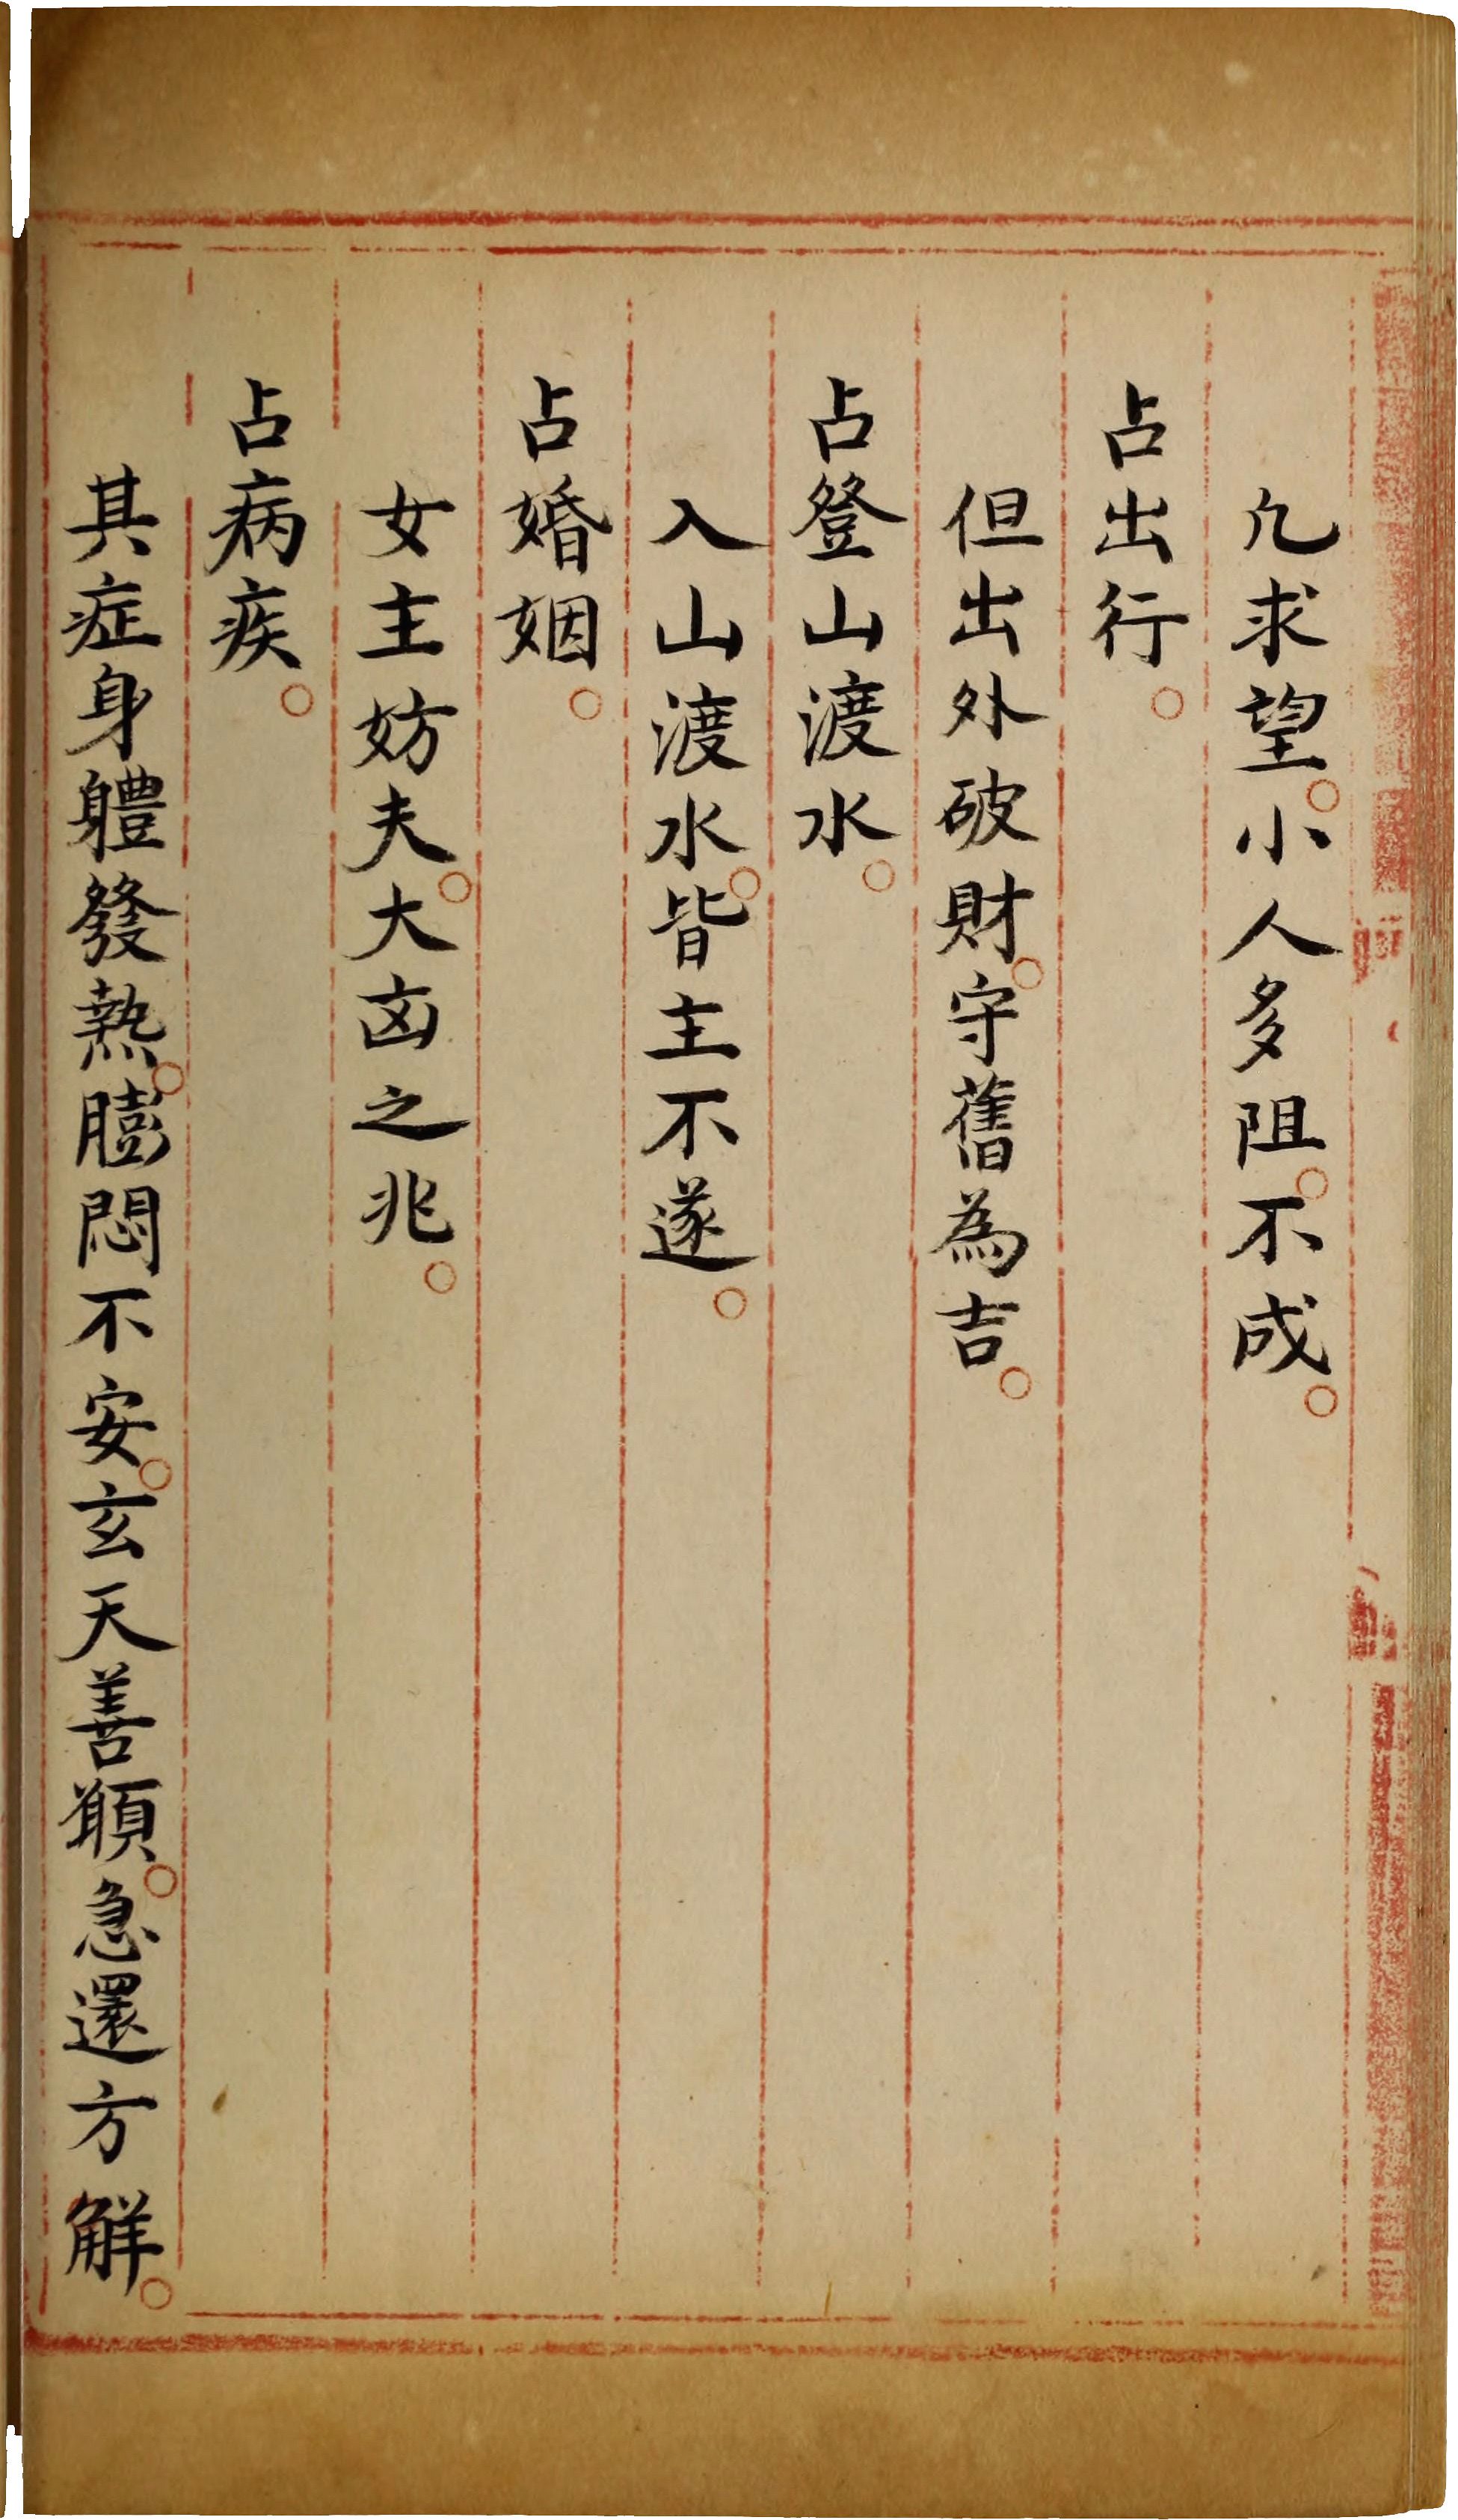 凢求望。小人多阻。不成。
占出行。
但出外破財。守舊為吉。
占登山渡水。
入山渡水。皆主不遂。
占婚姻。
女主妨夫。大凶之兆。
占病疾。
其症身軆發熱。膨悶不安。玄天善願。急還方觧。